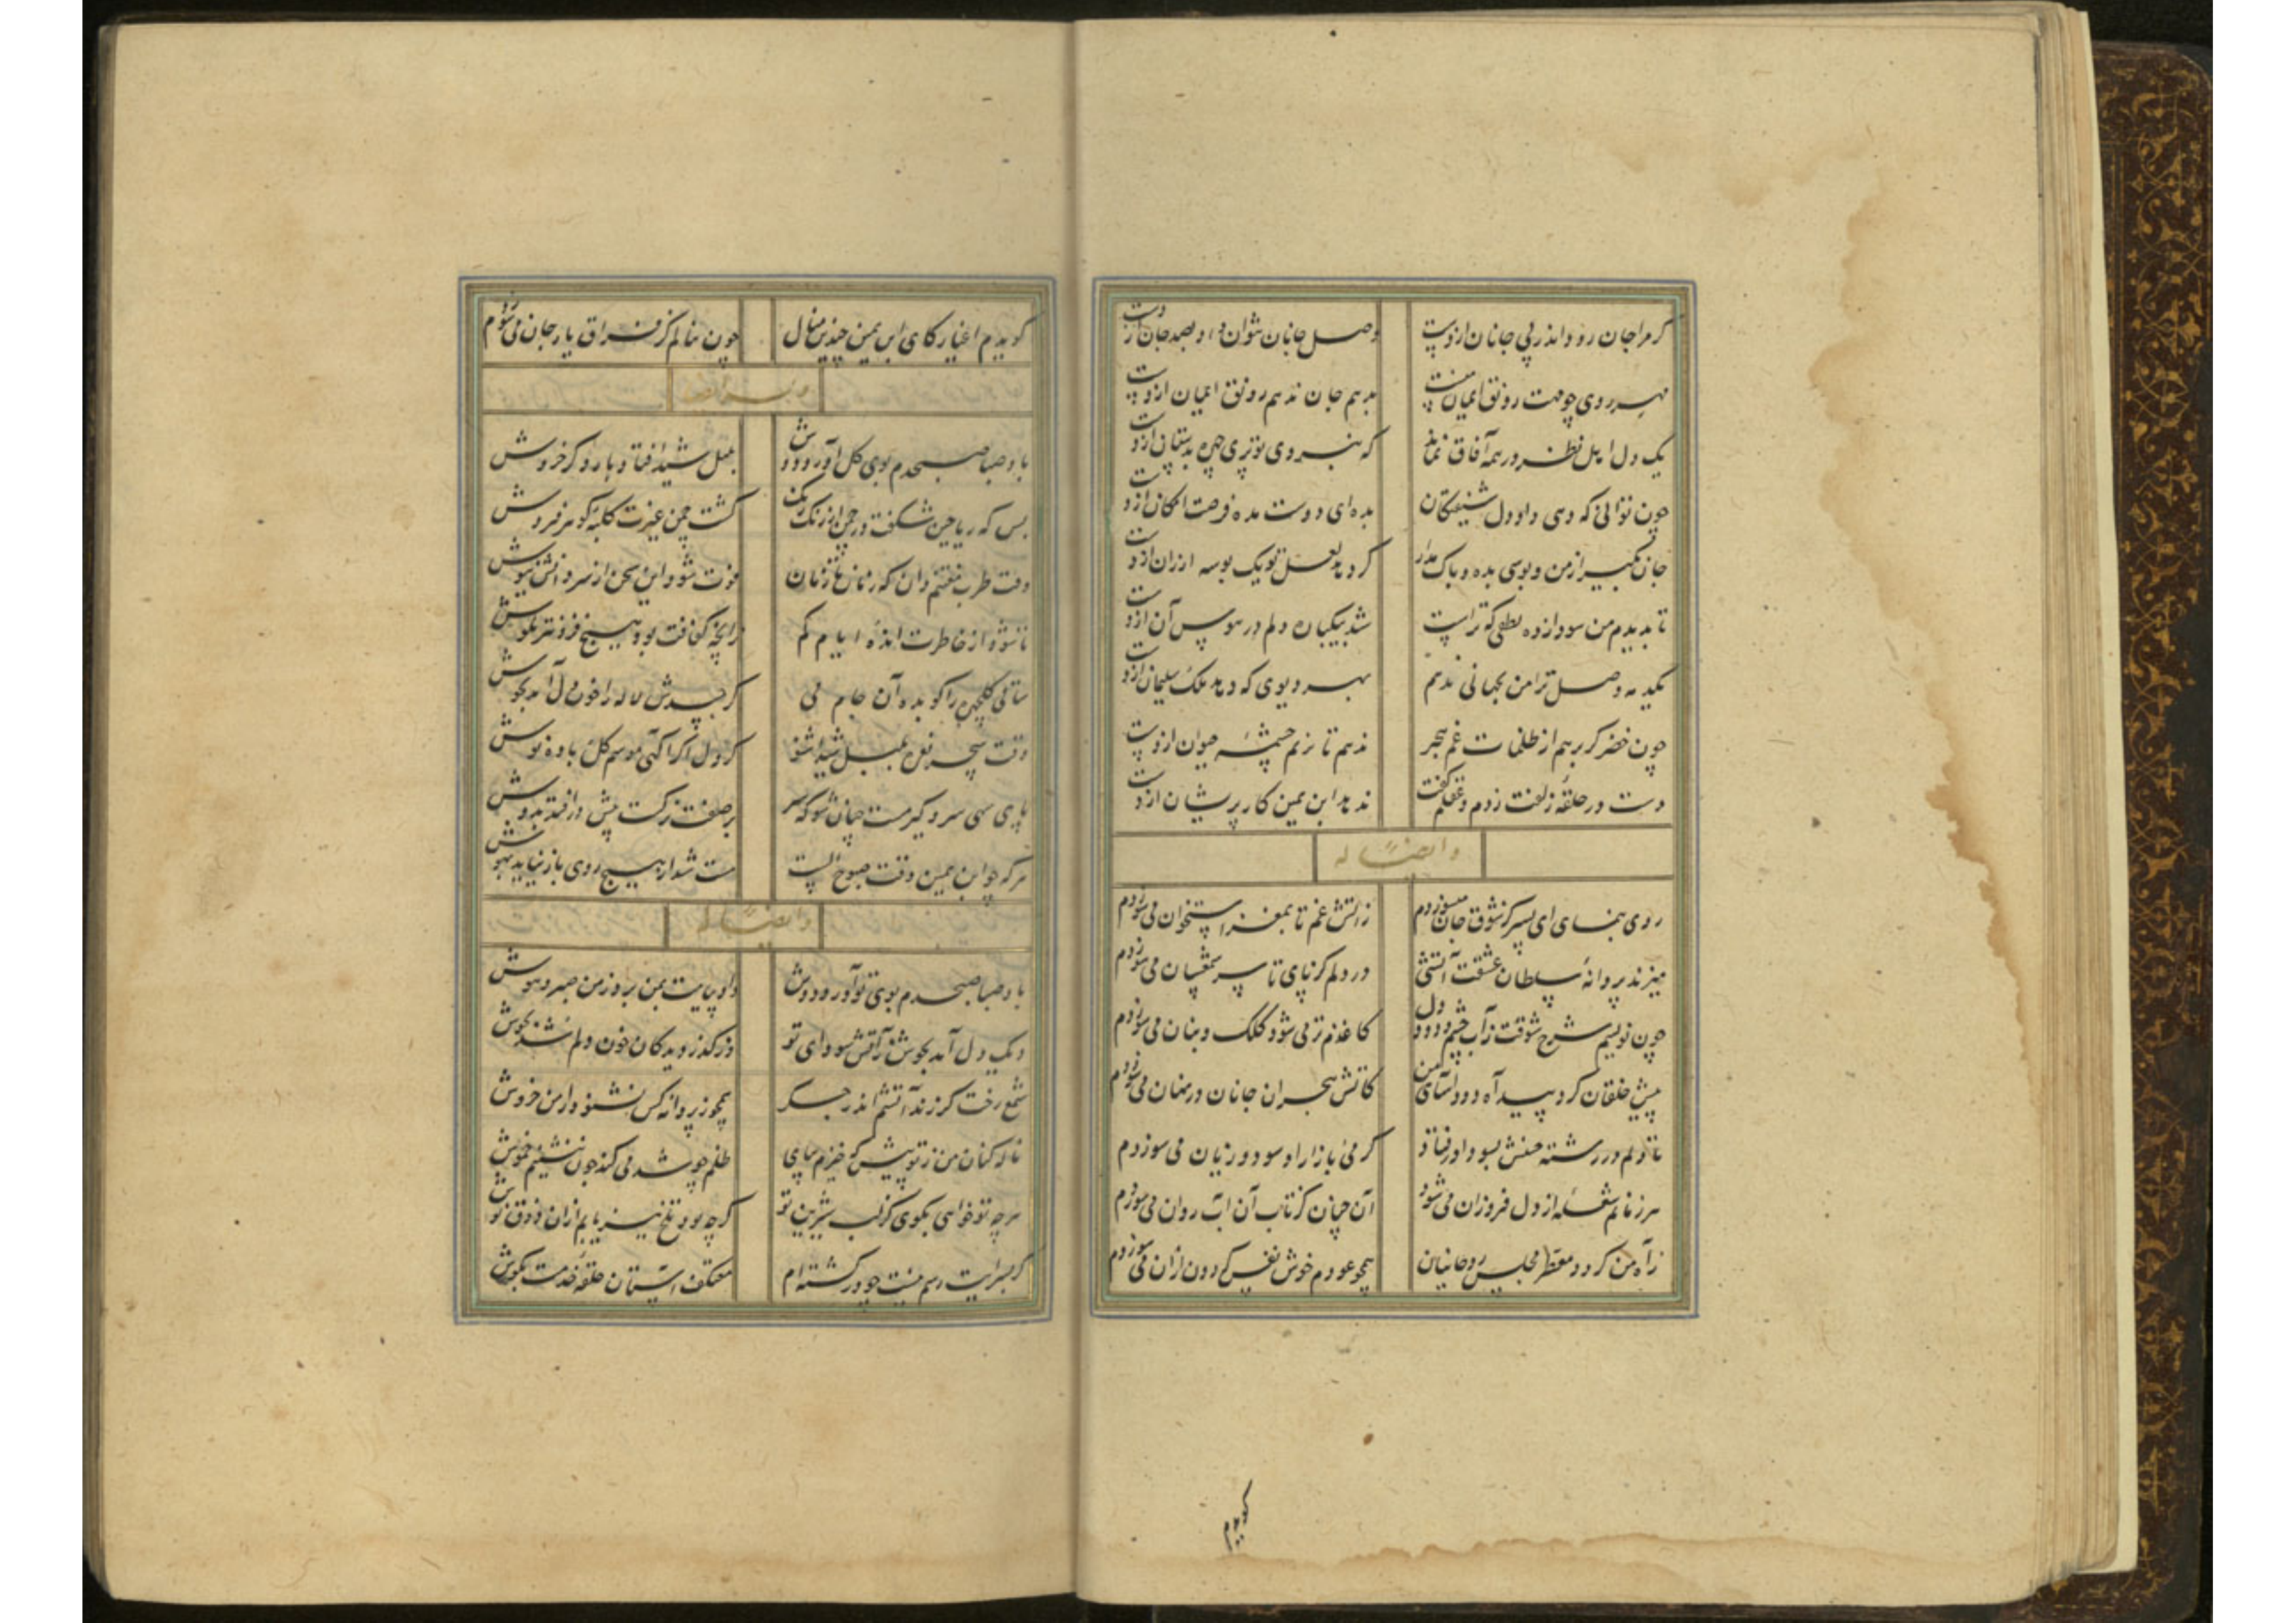 گر مرا جان رود اندر پی جانان ازدست
وصل جانان نتوان داد بصد جان ازدست
مهر روی چو مهت رونق ایمان منست
بدهم جان ندهم رونق ایمان ازدست
یک دل اهل نظر در همه آفاق نماند
که نبردی تو پری چهره بدستان ازدست
چون توانی که دهی داد دل شیفتگان
مده ای دوست مده فرصت امکان ازدست
جان بگیر از من و بوسی بده و باک مدار
گر دهد لعل تو یک بوسه ارزان ازدست
تا بدیدم من سودازده لطفی که تراست
شد بیکباره دلم در هوس آن ازدست
یکدمه وصل ترا من بجهانی ندهم
بهر دیوی که دهد ملک سلیمان ازدست
چون خضر گر برهم از ظلمات غم هجر
ندهم تا بزیم چشمه حیوان ازدست
دست در حلقه زلفت زدم و عقلم گفت
ندهد ابن یمین کار پریشان ازدست
و ایضاً له
روی بنمای ای پسر کز شوق جان میسوزدم
زاتش غم تا بمغز استخوان می‌سوزدم
میزند پروانهٔ سلطان عشقت آتشی
در دلم کز پای تا سر می‌سوزدم
چون نویسم شرح شوقت زآب چشم و دود دل
کاغذم تر می‌شود کلک و بنان می‌سوزدم
پیش خلقان کرد پیدا آه دود آسای من
کاتش هجران جانان در نهان می‌سوزدم
تا دلم در رشته عشقش بسودا اوفتاد
گرمی بازار او سود و زیان می‌سوزدم
هر زمانم شعله از دل فروزان می‌شود
آن چنان کز تاب آن آب روان می‌سوزدم
زآه من گردد معطر مجلس روحانیان
همچو عودم خوش نفس کاندرون زان می‌سوزدم
گویدم
گویدم اغیار کای ابن یمین چندین منال
چون ننالم کز فراق یار جان می‌سوزدم
و ایضاً له
باد صبا صبحدم بوی گل آورد دوش
بلبل شیدا فتاد باردگر خروش
بس که ریاحین شکفت در چمن از رنگ رنگ
گشت چمن غیرت کلبه گوهرفروش
وقت طرب مغتنم دان که زمان تا زمان
فوت شود این سخن از سر دانش نیوش
تا نشود از خاطرت انده ایام کم
ساقی گلچهره را گو بده آن جام می
گر حسدش لاله را خون دل آمد بجوش
وقت سحر نعره بلبل شیدا شنو
گر دل آگاهی موسم گل باده نوش
پای سهی سرو گیر مست چنان شو که سر
هر که چو ابن یمین وقت صبوح الست
مست شد از هیچ روی باز نیاید بهوش
و ایضاً له
باد صبا صبحدم بوی تو آورد دوش
داد بیایت بمن برد ز من صبر و هوش
دیک دل آمد بجوش زآتش سودای تو
وز گذر دیدگان خون دلم شد بجوش
شمع رخت گر زند آتشم اندر جگر
همچو ز پروانه کس نشنود از من خروش
ناله کنان من ز تو پیش که خیزم بپای
ظلم چو شه می کند چون ننشینم خموش
هرچه تو خواهی بگوی کز لب شیرین تو
گرچه بود تلخ نیز یابم ازان ذوق نوش
گر بسرایت رهم نیست چو در گشته‌ام
معتکف آستان حلقه خدمت بگوش